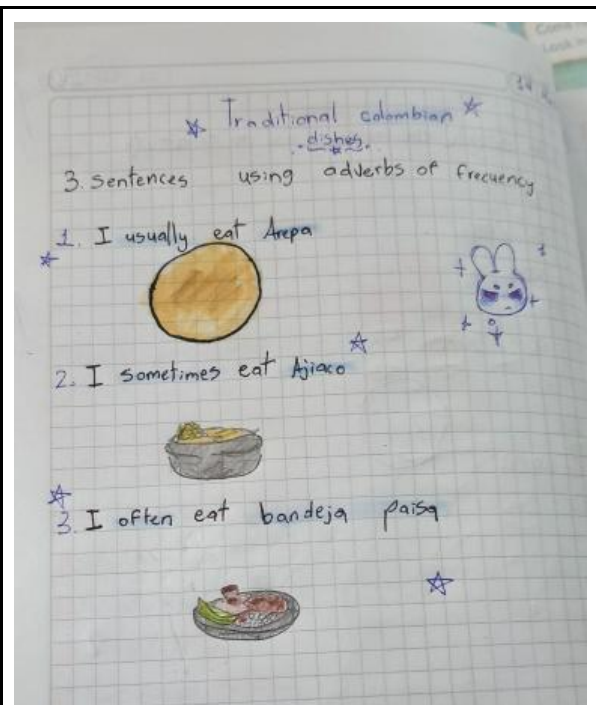 Traditional colombian
dishes.
3. Sentences using adverbs of frecuency
1. I usually eat Arepa
2. I sometimes eat Ajiaco
3. I often eat bandeja paisa